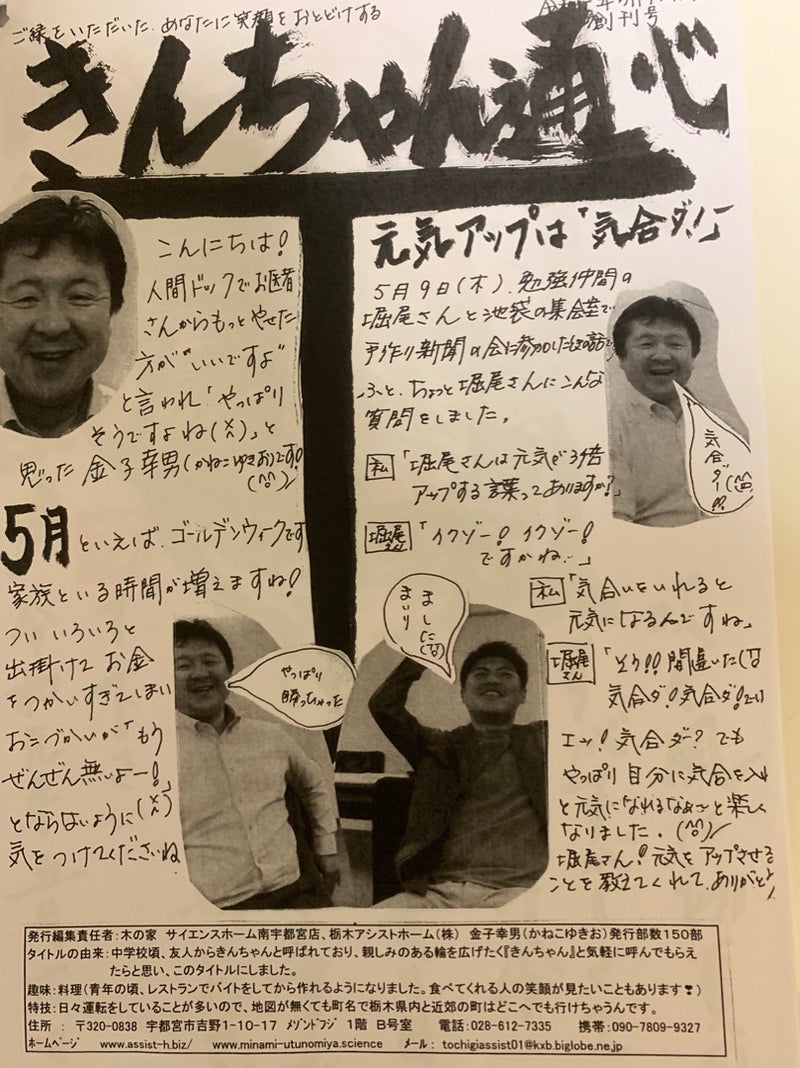 ご縁をいただいた、あなたに笑顔をおとどけする
創刊号
きんちゃん通心
こんにちは!
人間ドックでお医者
さんからもっとやせた
方が"いいですよ"
と言われ「やっぱり
そうですよね(××)」と
思った 金子幸男(かねこゆきお)です!
(^o^)/
5月といえば、ゴールデンウィークです
家族といる時間が増えますね!
つい いろいろと
出掛けて お金
をつかいすぎてしまい
おこづかいが「もう
ぜんぜん無いよー!」
とならないように(××)
気をつけてくださいね
やっぱり
勝っちゃった
元気アップは「気合ダ!」
5月9日(木)、勉強仲間の
堀尾さんと池袋の集会室で
手作り新聞の会に参加した時の話で
ふと、ちょっと堀尾さんにこんな
質問をしました。
私「堀尾さんは元気が3倍
アップする言葉ってありますか?」
堀尾さん「イクゾー!イクゾー!
ですかね…」
気合ダー!!(^o^)
まいり
ました(^o^;)
私「気合いをいれると
元気になるんですね」
堀尾さん「そう!!間違いなく
気合ダ!気合ダ!
エッ!気合ダー?でも
やっぱり自分に気合を入れ
と元気になれるなぁ〜と楽しく
なりました。(^o^)/
堀尾さん!元気をアップさせる
ことを教えてくれて、ありがとう
発行編集責任者:木の家 サイエンスホーム南宇都宮店、栃木アシストホーム(株) 金子幸男(かねこゆきお)発行部数150部
タイトルの由来:中学校頃、友人からきんちゃんと呼ばれており、親しみのある輪を広げたく『きんちゃん』と気軽に呼んでもらえ
たらと思い、このタイトルにしました。
趣味:料理(青年の頃、レストランでバイトをしてから作れるようになりました。食べてくれる人の笑顔が見たいこともあります❣)
特技:日々運転をしていることが多いので、地図が無くても町名で栃木県内と近郊の町はどこへでも行けちゃうんです。
住所 : 〒320-0838 宇都宮市吉野1-10-17 メゾンドフジ 1階 B号室 電話:028-612-7335 携帯:090-7809-9327
ホームページ www.assist-h.biz/ www.minami-utunomiya.science メール: tochigiassist01@kxb.biglobe.ne.jp